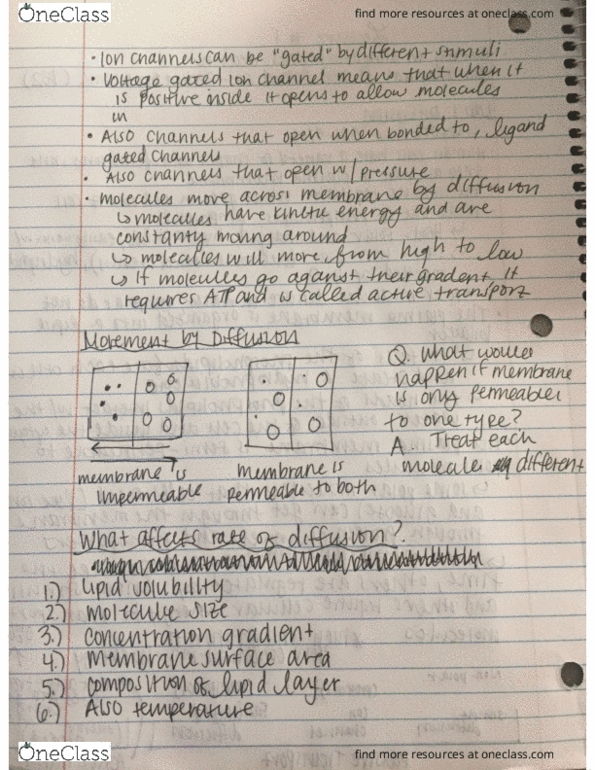 OneClass
find more resources at oneclass.com
• Ion channels can be "gated" by different stimuli
• Voltage gated ion channel means that when it
is positive inside it opens to allow molecules
in
• Also channels that open when bonded to, ligand
gated channels
• Also channels that open w/ pressure
• molecules move across membrane by diffusion
↳ molecules have kinetic energy and are
constanty moving around
↳ molecules will more from high to low
↳ If molecules go against their gradent it
requires ATP and is called active transport
Movement by Diffusion
Q. What would
happen if membrane
is only permeable
to one type?
A. Treat each
molecule different
membrane is
impermeable
membrane is
permeable to both
What affects rate of diffusion?
1.) lipid solubility
2.) molecule size
3.) concentration gradient
4.) membrane surface area
5.) composition of lipid layer
6.) Also temperature
OneClass
find more resources at oneclass.com